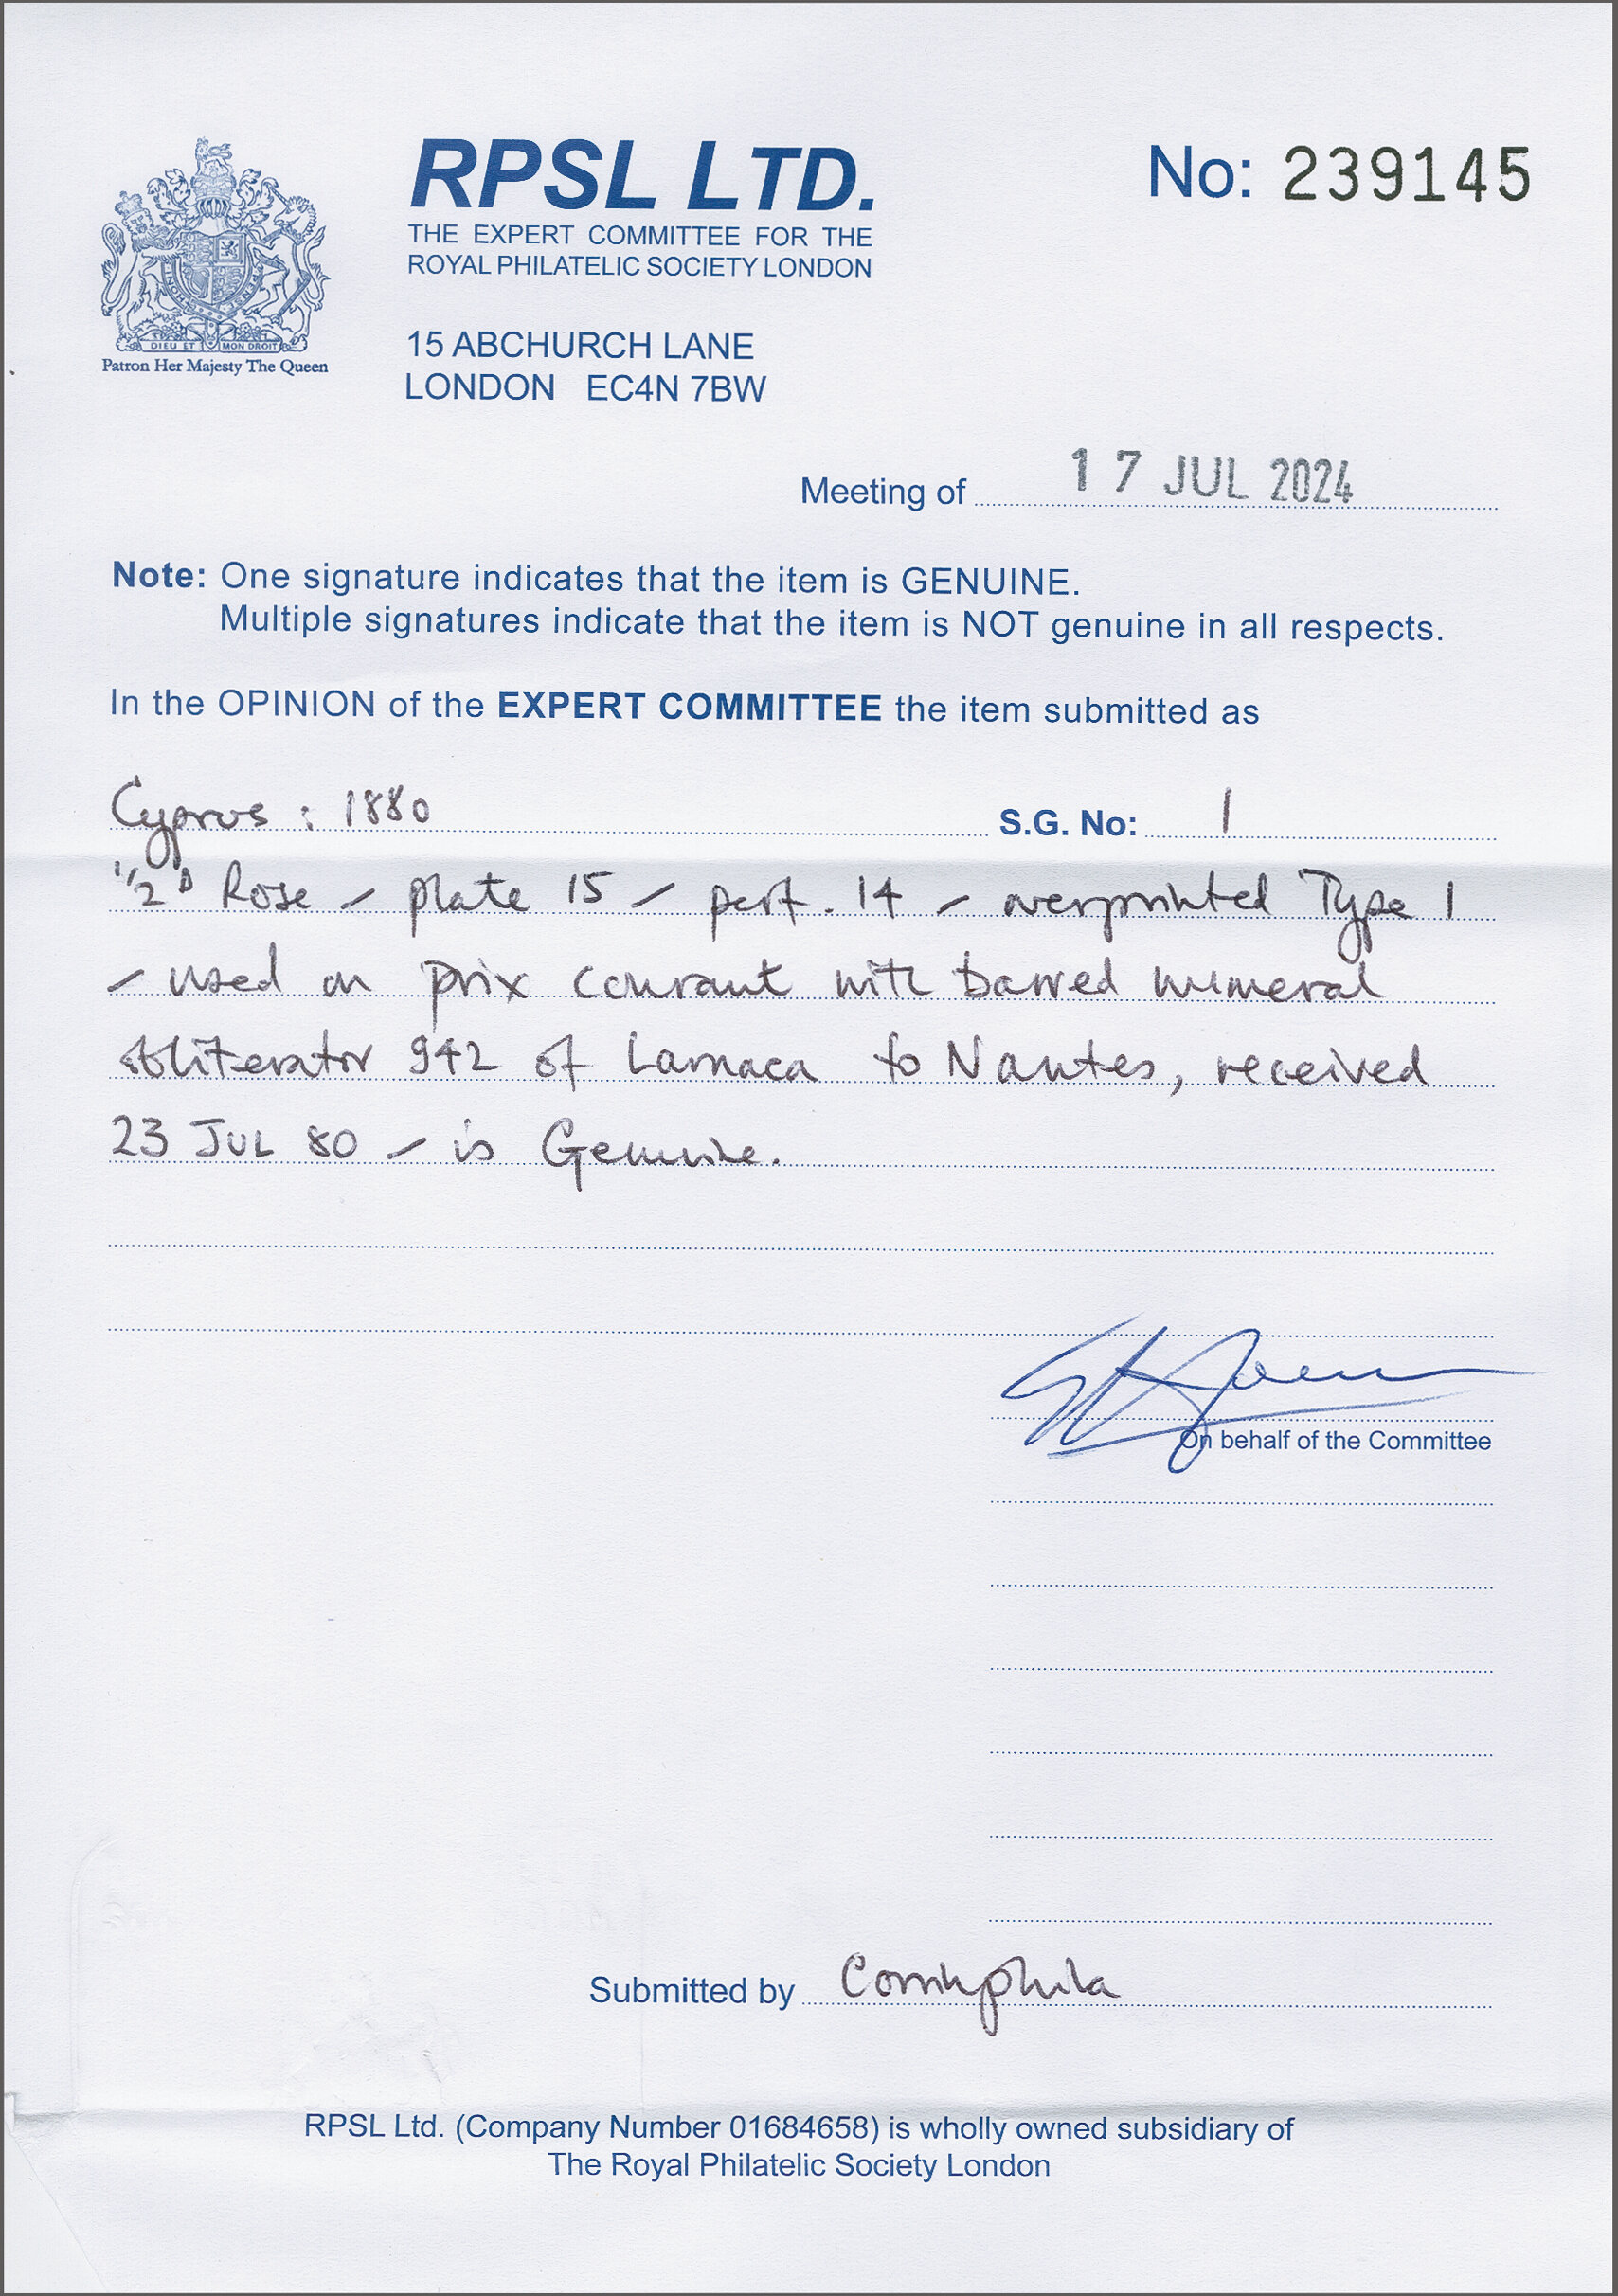 RPSL LTD.
THE EXPERT COMMITTEE FOR THE
ROYAL PHILATELIC SOCIETY LONDON
15 ABCHURCH LANE
LONDON EC4N 7BW
No: 239145
DIEU ET MON DROIT
Patron Her Majesty The Queen
Meeting of 17 JUL 2024
Note: One signature indicates that the item is GENUINE.
Multiple signatures indicate that the item is NOT genuine in all respects.
In the OPINION of the EXPERT COMMITTEE the item submitted as
Cyprus : 1880 S.G. No: 1
1/2 D Rose - plate 15 - perf. 14 - overprinted Type 1
- used on prix courant with barred numeral
obliterator 942 of Larnaca to Nantes, received
23 JUL 80 - is Genuine.
On behalf of the Committee
Submitted by Corinphila
RPSL Ltd. (Company Number 01684658) is wholly owned subsidiary of
The Royal Philatelic Society London